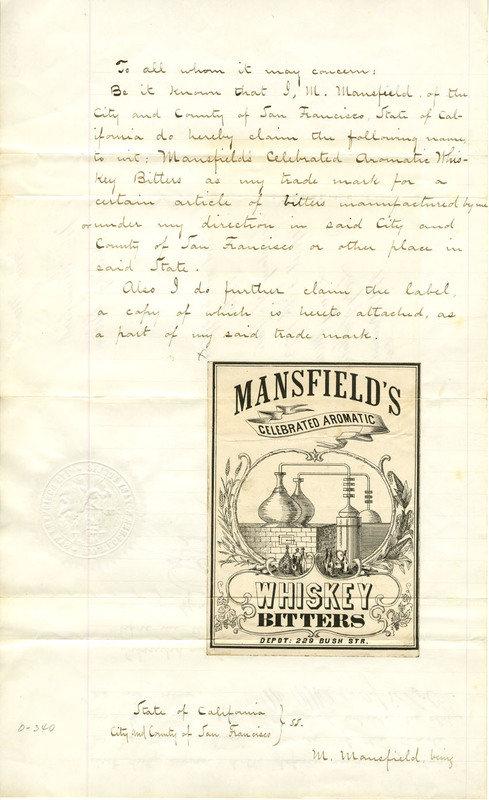 To all whom it may concern:
Be it known that I, M. Mansfield, of the
City and County of San Francisco, State of Cal-
ifornia do hereby claim the following name,
to wit: Mansfield's Celebrated Aromatic Whis-
key Bitters as my trade mark for a
certain article of bitters manufactured by me
or under my direction in said City and
County of San Francisco or other place in
said State.
Also I do further claim the label,
a copy of which is hereto attached, as
a part of my said trade mark.
x
MANSFIELD'S
CELEBRATED AROMATIC
WHISKEY
BITTERS
DEPOT: 229 BUSH STR.
State of California
City and County of San Francisco } ss.
0-340
M. Mansfield, being